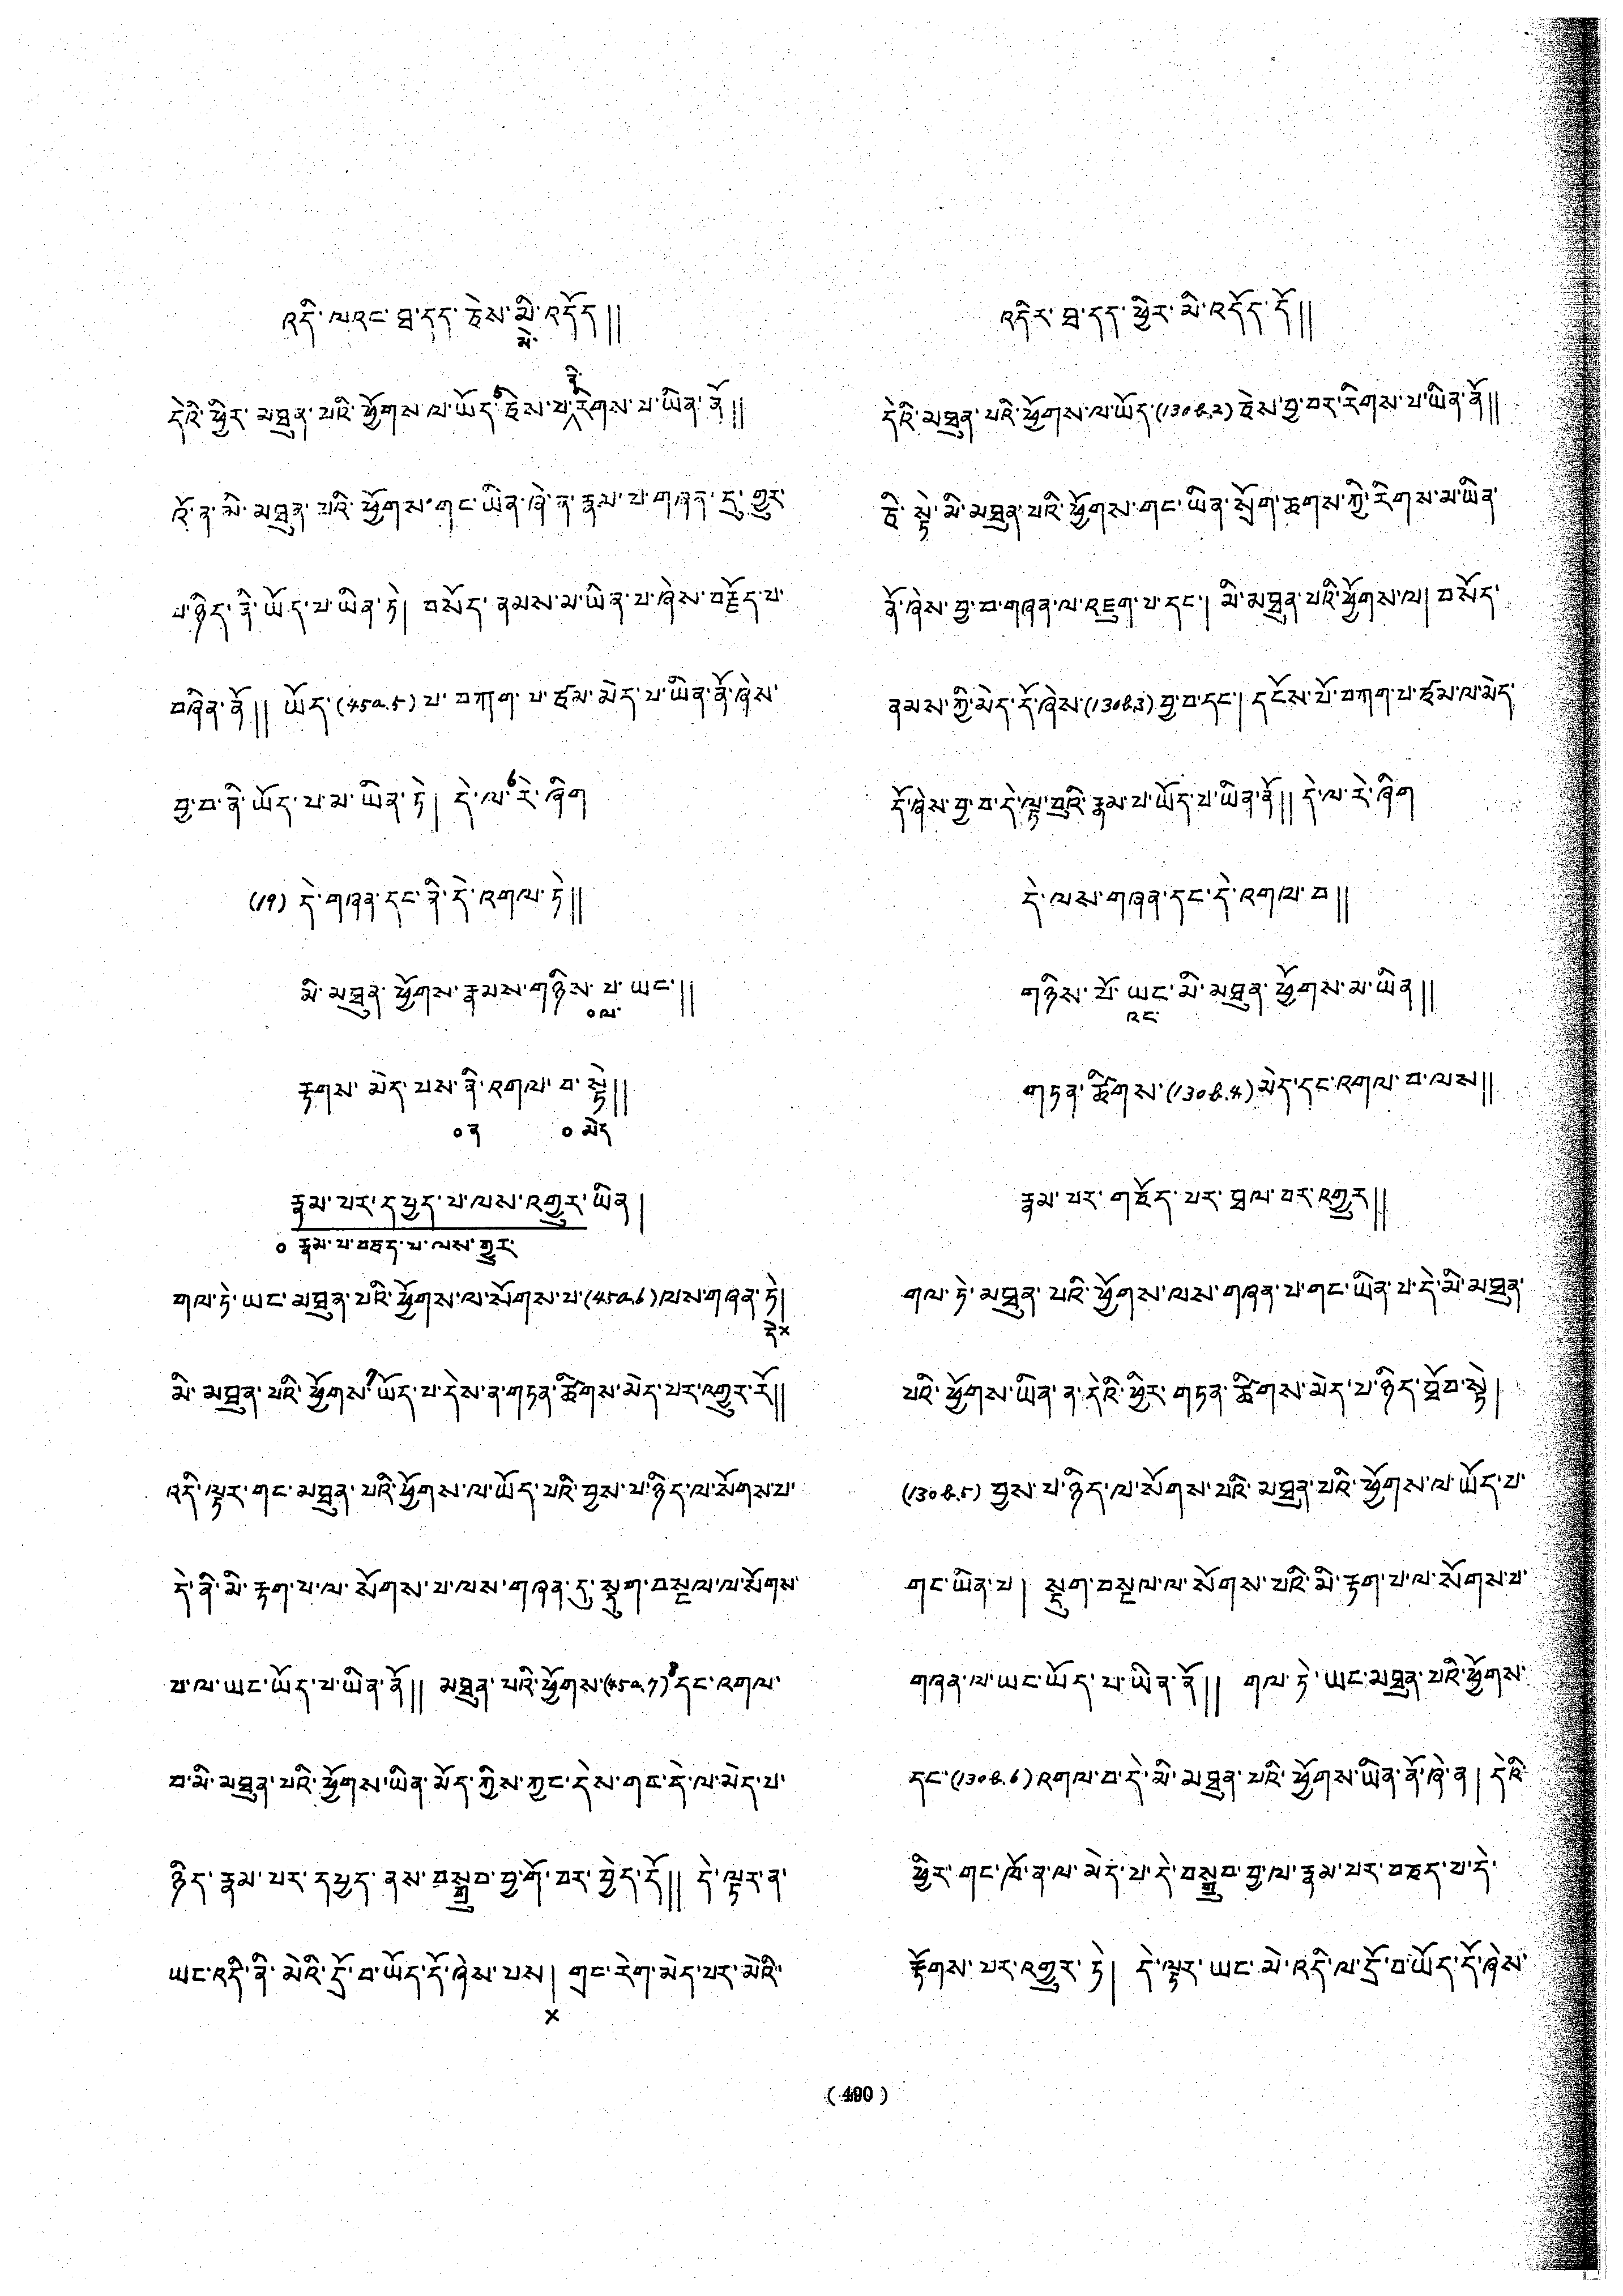 འདི་ལའང་ཐ་དད་ཅེས་མི་འདོད༎
མེ་
ནི་
དེའི་ཕྱིར་མཐུན་པའི་ཕྱོགས་ལ་ཡོད་5ཅེས་པ་རིགས་པ་ཡིན་ནོ༎
འོ་ན་མི་མཐུན་པའི་ཕྱོགས་གང་ཡིན་ཞེ་ན་རྣམ་པ་གཞན་དུ་གྱུར་
པ་ཉིད་ནི་ཡོད་པ་ཡིན་ཏེ། བསོད་ནམས་མ་ཡིན་པ་ཞེས་བརྗོད་པ་
བཞིན་ནོ༎ ཡོད་(45a.5)པ་བཀག་པ་ཙམ་མེད་པ་ཡིན་ནོ་ཞེས་
བྱ་བ་ནི་ཡོད་པ་མ་ཡིན་ཏེ། དེ་ལ་6རེ་ཞིག
(19) དེ་གཞན་དང་ནི་དེ་འགལ་ཏེ༎
མི་མཐུན་ཕྱོགས་རྣམས་གཉིས་པ་ཡང་༎
ལ་
རྟགས་མེད་པས་ནི་འགལ་བ་སྟེ༎
ན མེད
རྣམ་པར་དཔྱད་པ་ལས་འགྱུར་ཡིན།
རྣམ་པ་བཅད་པ་ལས་གྱུར་
གལ་ཏེ་ཡང་མཐུན་པའི་ཕྱོགས་ལ་སོགས་པ་(45a.6)ལས་གཞན་ཏེ།
དེ×
མི་མཐུན་པའི་ཕྱོགས་7ཡོད་པ་དེས་ན་གཏན་ཚིགས་མེད་པར་འགྱུར་རོ༎
འདི་ལྟར་གང་མཐུན་པའི་ཕྱོགས་ལ་ཡོད་པའི་བྱས་པ་ཉིད་ལ་སོགས་པ་
དེ་ནི་མི་རྟག་པ་ལ་སོགས་པ་ལས་གཞན་དུ་སྡུག་བསྔལ་ལ་སོགས་
པ་ལ་ཡང་ཡོད་པ་ཡིན་ནོ༎ མཐུན་པའི་ཕྱོགས་(45a.7)8དང་འགལ་
བ་མི་མཐུན་པའི་ཕྱོགས་ཡིན་མོད་ཀྱིས་ཀྱང་དེས་གང་དེ་ལ་མེད་པ་
ཉིད་རྣམ་པར་དཔྱད་ནས་བསྒྲུབ་བྱ་གོ་བར་བྱེད་དོ༎ དེ་ལྟར་ན་
ཡང་འདི་ནི་མེའི་དྲོ་བ་ཡོད་དོ་ཞེས་པས། གྲང་རེག་མེད་པར་མེའི་
×
འདིར་ཐ་དད་ཕྱིར་མི་འདོད་དོ༎
དེའི་མཐུན་པའི་ཕྱོགས་ལ་ཡོད་(130b.2)ཅེས་བྱ་བར་རིགས་པ་ཡིན་ནོ༎
ཅི་སྟེ་མི་མཐུན་པའི་ཕྱོགས་གང་ཡིན་སྲོག་ཆགས་ཀྱི་རིགས་མ་ཡིན་
ནོ་ཞེས་བྱ་བ་གཞན་ལ་འཇུག་པ་དང་། མི་མཐུན་པའི་ཕྱོགས་ལ། བསོད་
ནམས་ཀྱི་མེད་དོ་ཞེས་(130b.3)བྱ་བ་དང་། དངོས་པོ་བཀག་པ་ཙམ་ལ་མེད་
དོ་ཞེས་བྱ་བ་དེ་ལྟ་བུའི་རྣམ་པ་ཡོད་པ་ཡིན་ནོ༎ དེ་ལ་རེ་ཞིག
དེ་ལས་གཞན་དང་དེ་འགལ་བ༎
གཉིས་པོ་ཡང་མི་མཐུན་ཕྱོགས་མ་ཡིན༎
འང་
གཏན་ཚིགས་(130b.4)མེད་དང་འགལ་བ་ལས༎
རྣམ་པར་གཅོད་པར་བྲལ་བར་འགྱུར༎
གལ་ཏེ་མཐུན་པའི་ཕྱོགས་ལས་གཞན་པ་གང་ཡིན་པ་དེ་མི་མཐུན་
པའི་ཕྱོགས་ཡིན་ན་དེའི་ཕྱིར་གཏན་ཚིགས་མེད་པ་ཉིད་ཐོབ་སྟེ།
(130b.5) བྱས་པ་ཉིད་ལ་སོགས་པའི་མཐུན་པའི་ཕྱོགས་ལ་ཡོད་པ་
གང་ཡིན་པ། སྡུག་བསྔལ་ལ་སོགས་པའི་མི་རྟག་པ་ལ་སོགས་པ་
གཞན་ལ་ཡང་ཡོད་པ་ཡིན་ནོ༎ གལ་ཏེ་ཡང་མཐུན་པའི་ཕྱོགས་
དང་(130b.6)འགལ་བ་དེ་མི་མཐུན་པའི་ཕྱོགས་ཡིན་ནོ་ཞེ་ན། དེའི་
ཕྱིར་གང་ཁོ་ན་ལ་མེད་པ་དེ་བསྒྲུབ་བྱ་ལ་རྣམ་པར་བཅད་པ་དེ་
རྟོགས་པར་འགྱུར་ཏེ། དེ་ལྟར་ཡང་མེ་འདི་ལ་དྲོ་བ་ཡོད་དོ་ཞེས་
(490)